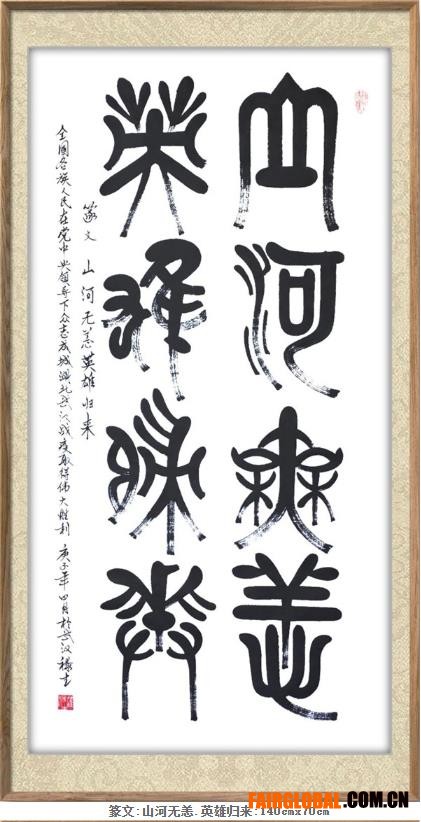 山河無恙
英雄歸來
篆文 山河无恙英雄归来
全国各族人民在党中央领导下众志成城湖北武汉战疫取得伟大胜利 庚子年四月於武汉
篆文:山河无恙.英雄归来:140cmx70cm
FAIRGLOBAL.COM.CN